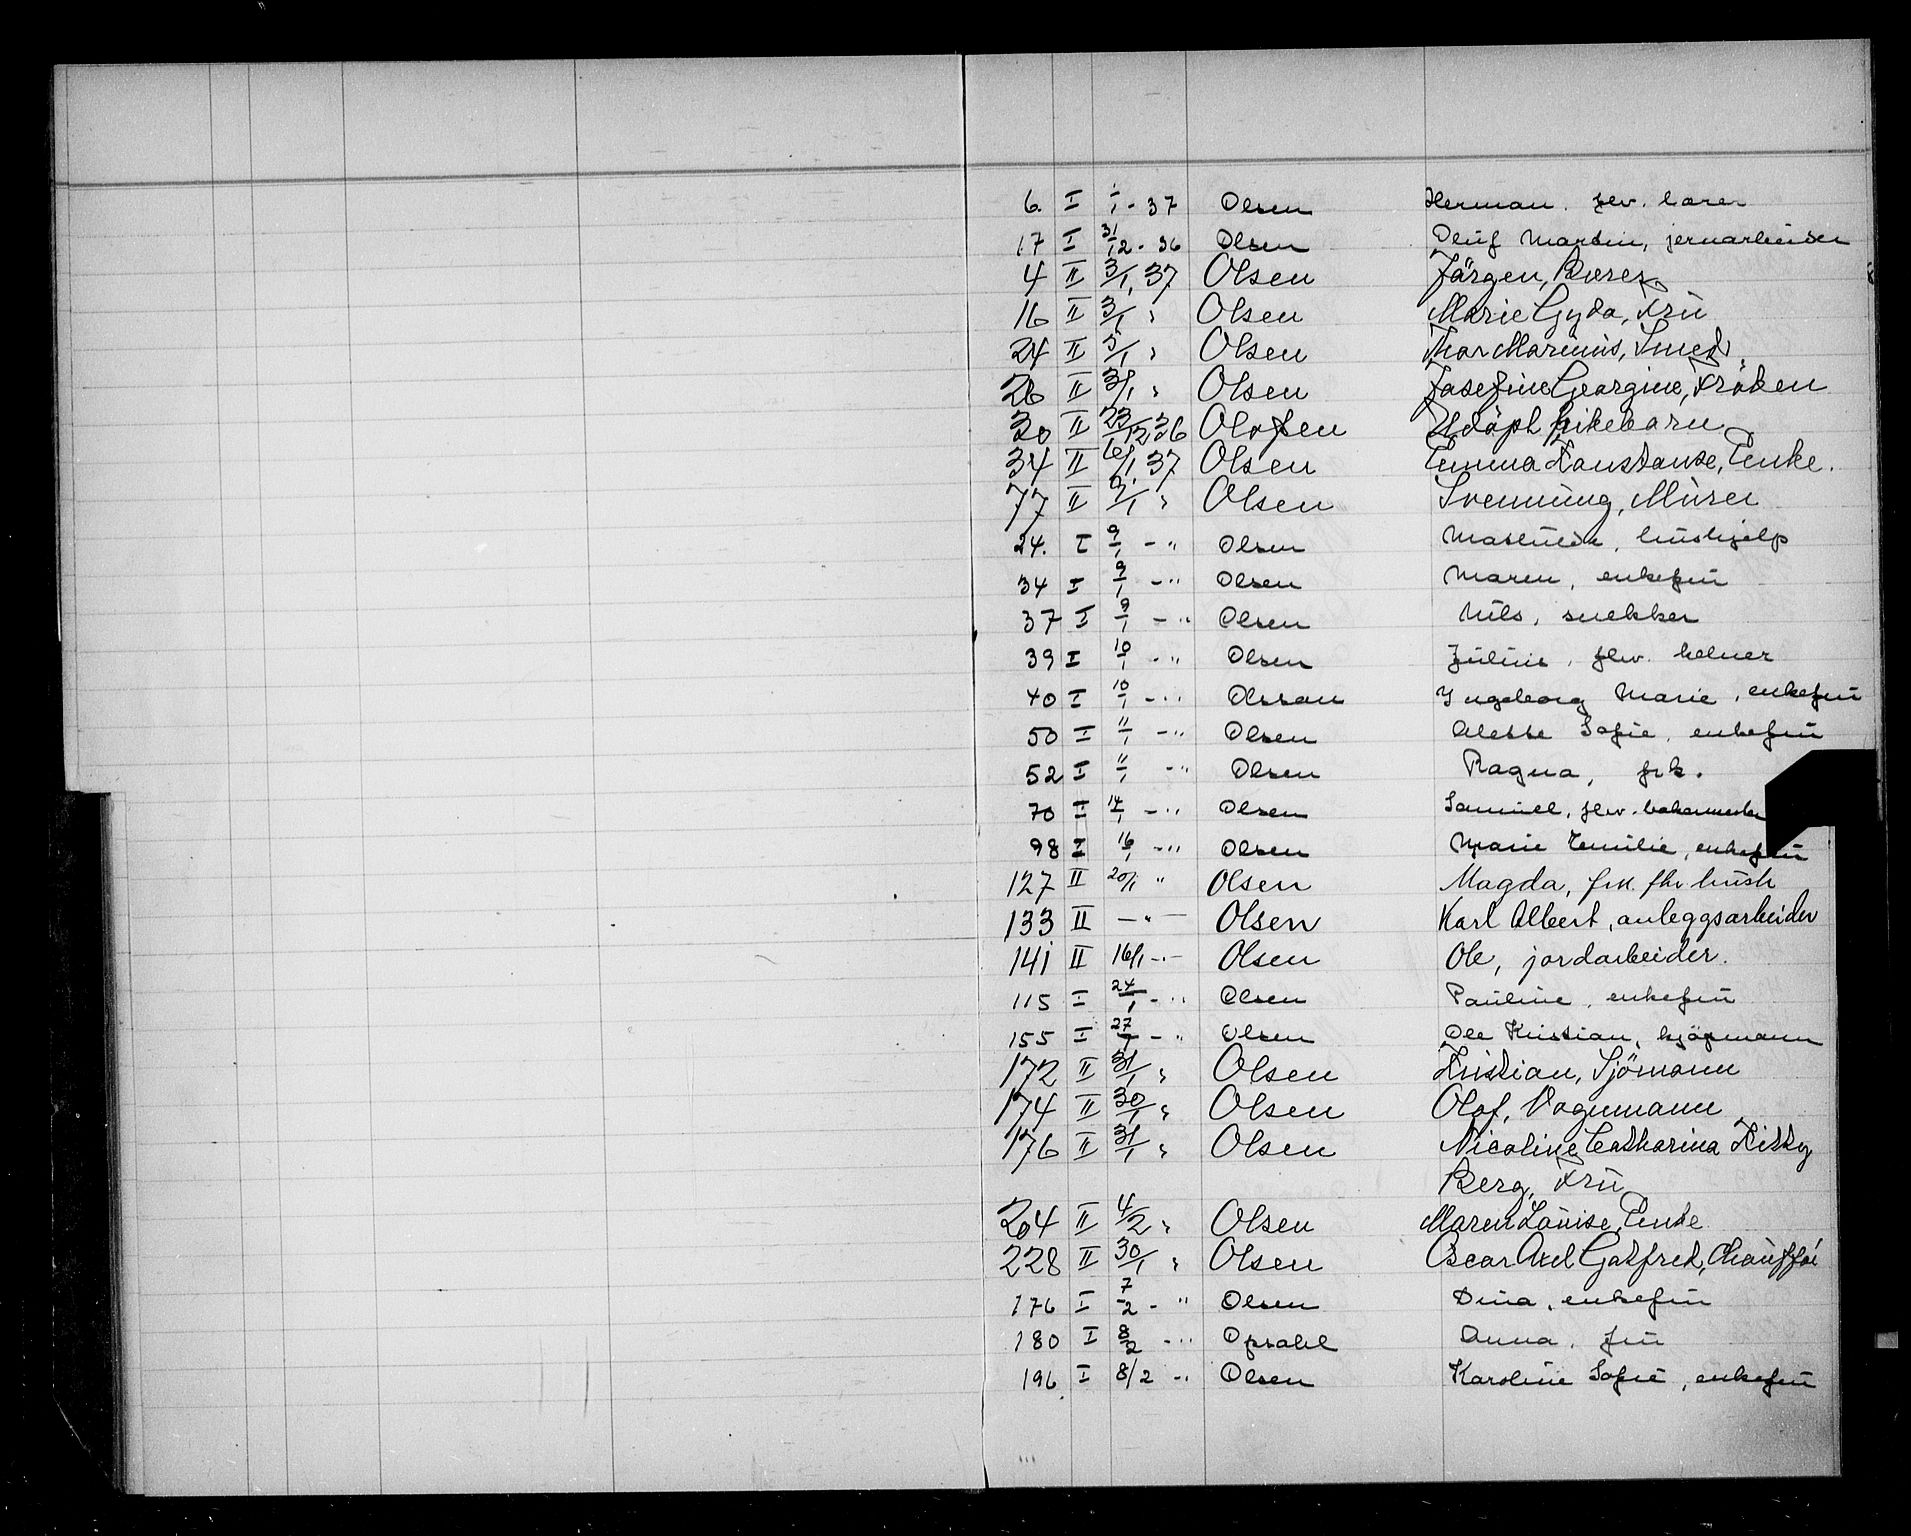 6. I 1/1 - 37 Olsen Herman, fhv. bærer
17 I 31/12 - 36 Olsen Oluf Martin, jernarbeider
4 II 3/1, 37 Olsen Jörgen, Bærer.
16 II 3/1 " Olsen Marie Gyda, Frü
24 II 5/1 " Olsen Thor Marinius, Smed.
26 II 3/1 " Olsen Josefine Georgine, Fröken
30 II 23/12 36 Olofsen Udöpt pikebarn
34 II 6/1, 37 Olsen Emma Konstanse, Enke.
77 II 9/1 " Olsen Svennüng, Mürer
24. I 9/1 - " Olsen hüshjelp
34 I 9/1 - " Olsen Maren, enkefrü
37 I 9/1 - " Olsen Nils, snekker
39 I 10/1 - " Olsen Jüliüs, fhv. kelner
40 I 10/1 - " Olssen Ingeborg Marie, enkefrü
50 I 11/1 - " Olsen Alette Sofie, enkefrü
52 I 11/1 - " Olsen Ragna, frk.
70 I 14/1 - " Olsen Samüel, fhv. bakermester
98 I 16/1 - " Olsen Marie Emilie, enkefrü
127 II 20/1 " Olsen Magda, frk. fhv hüsh
133 II - " - Olsen Karl Albert, anleggsarbeider
141 II 16/1 - " - Olsen Ole, jordarbeider.
115 I 24/1 - " Olsen Paüline, enkefrü
155 I 27/1 - " Olsen Ole Kristian, kjöpmann
172 II 31/1 " Olsen Kristian, Sjömann
174 II 30/1 " Olsen Olof, Vognmann
176 II 31/1 " Olsen Nicoline Catharina Kitty
Berg, Frü
204 II 4/2 " Olsen Maren Loüise, Enke
228 II 30/1 " Olsen Oscar Axel Gotfred, Chaüffør
176 I 7/2 - " Olsen Dina, enkefrü
180 I 8/2 - " Opsahl Anna, frü
196 I 8/2 - " Olsen Karoline Sofie, enkefrü